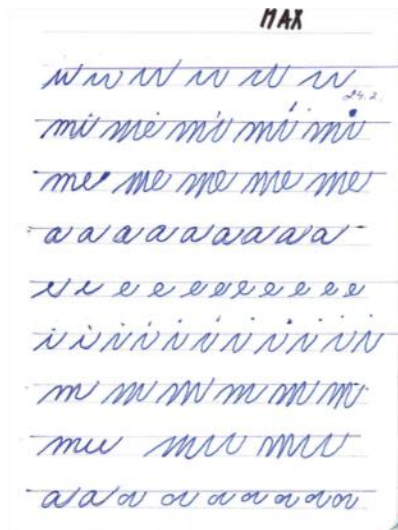 MAX
24.2.
mi mi mi mi mi
me me me me me
a a a a a a a a a a
e e e e e e e e e e e e
i i i i i i i i i i i
m m m m m m
mu mu mu
a a a a a a a a a a